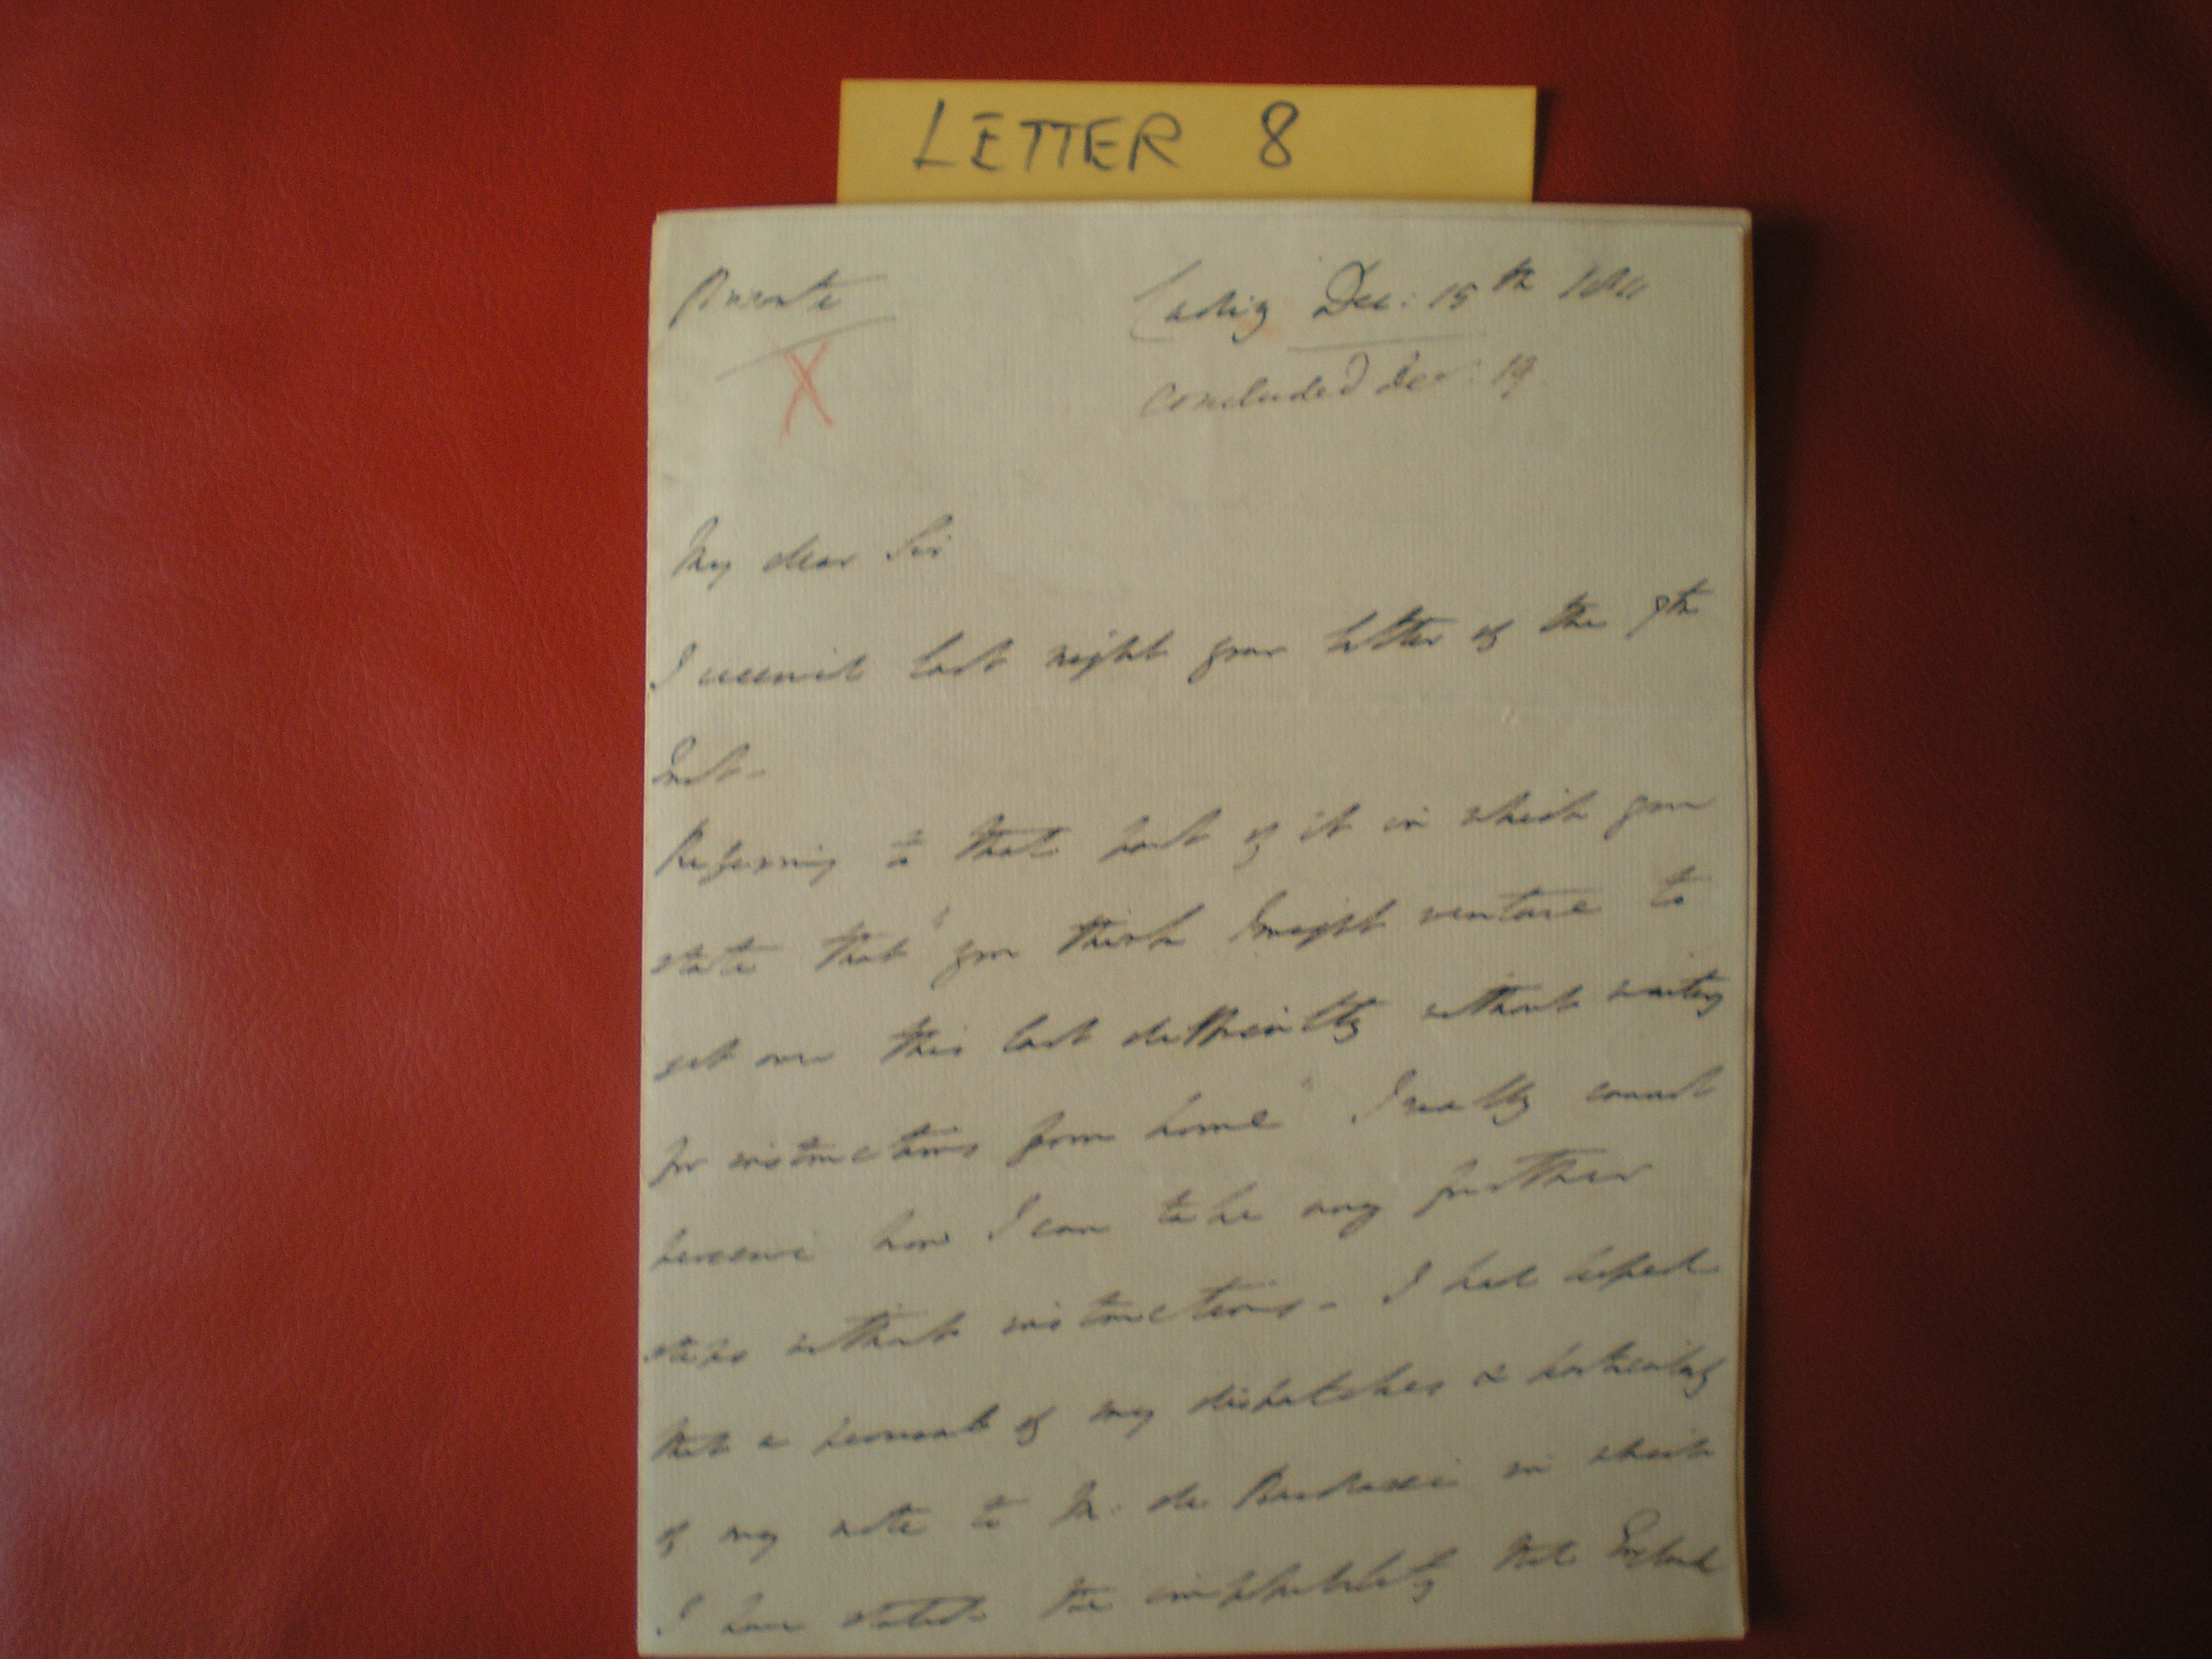 LETTER 8
Private
Cadiz Dec: 15th 1811
X
Concluded Dec: 19
My dear Sir
I received last night your letter of the 9th
Inst -
Referring to that part of it in which you
state that "you think I might venture to
get over this last difficulty without waiting
for instructions from home" I really cannot
perceive how I can take any further
steps without instructions - I had hoped
that a perusal of my dispatches & particularly
of my note to M. de Bardaxi in which
I have stated the improbability that England